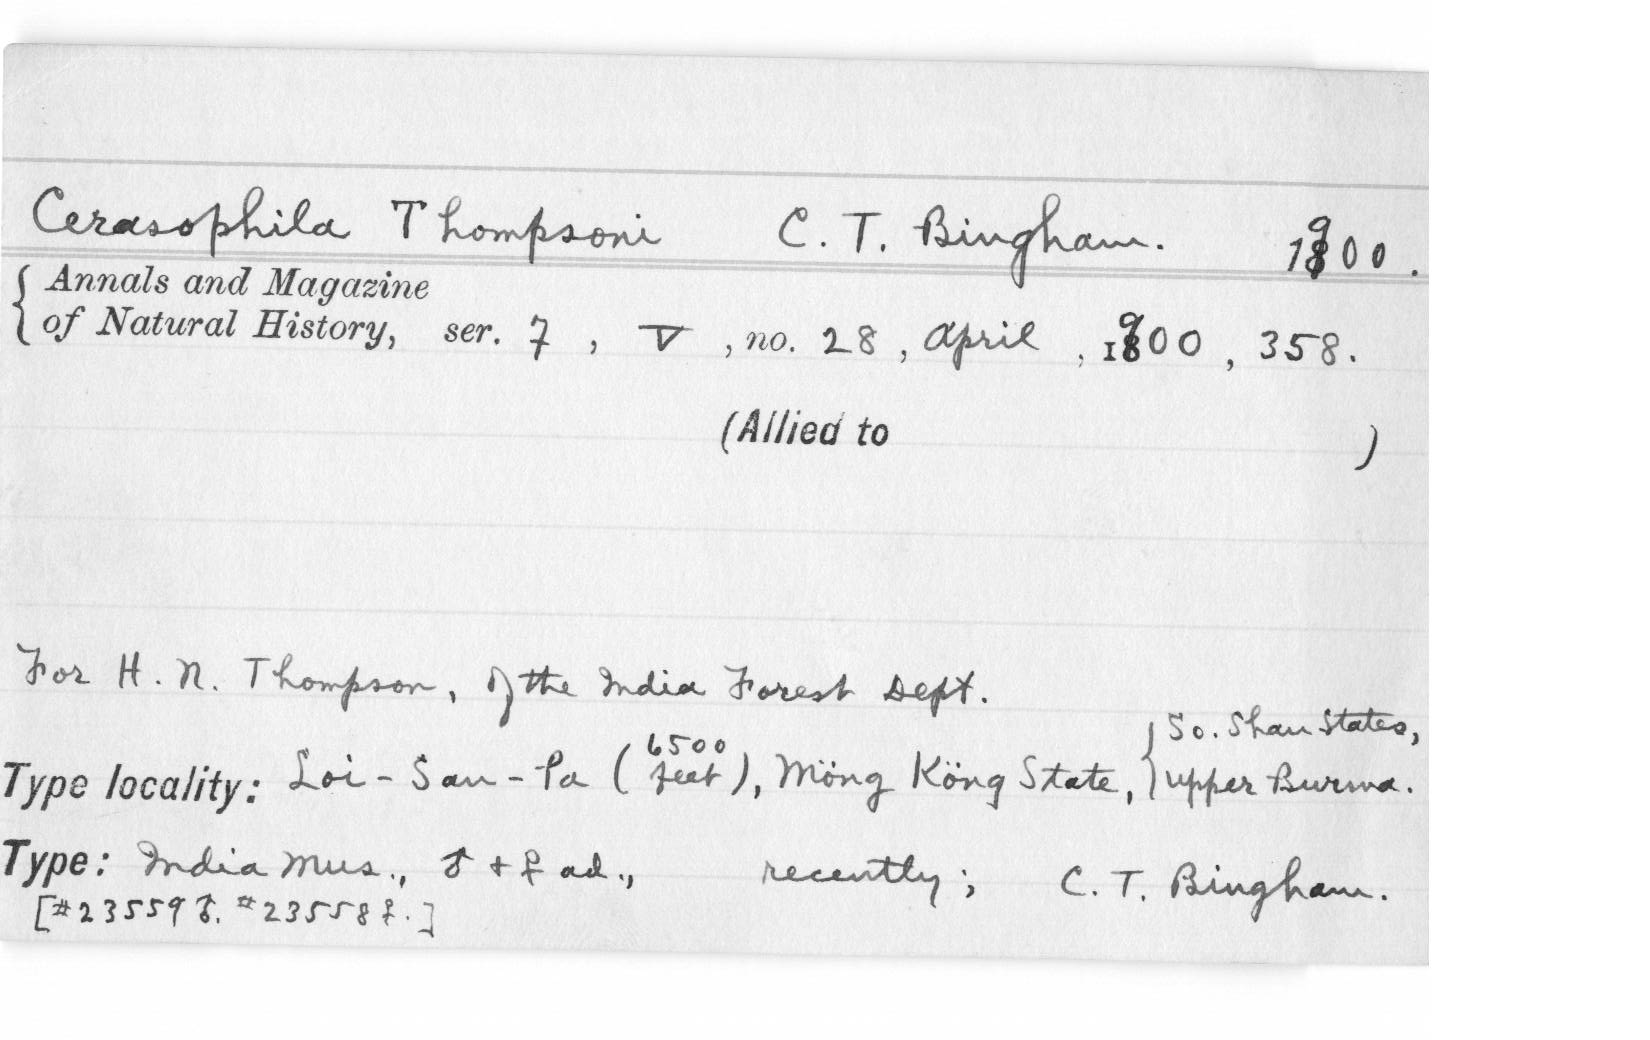 Cerasophila Thompsoni C. T. Bingham. 1900.
{ Annals and Magazine
of Natural History, ser. 7, V, no. 28, April, 1900, 358.
(Allied to )
For H. N. Thompson, of the India Forest Dept.
Type locality: Loi-San-Pa (6500 feet), Möng Köng State, { So. Shan States, upper Burma.
Type: India Mus., ♂ + ♀ ad., recently; C. T. Bingham.
[#23559 ♂. #23558 ♀.]